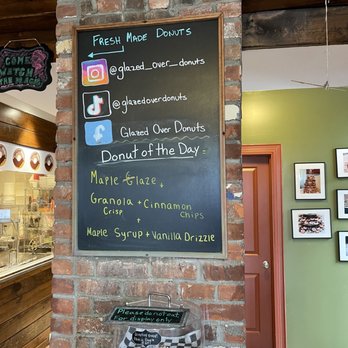 COME
WATCH
Fresh Made Donuts
@glazed_over_donuts
@glazedoverdonuts
Glazed Over Donuts
Donut of the Day
Maple Glaze +
Granola + Cinnamon
Crisp Chips
+
Maple Syrup + Vanilla Drizzle
Please do not eat
For display only